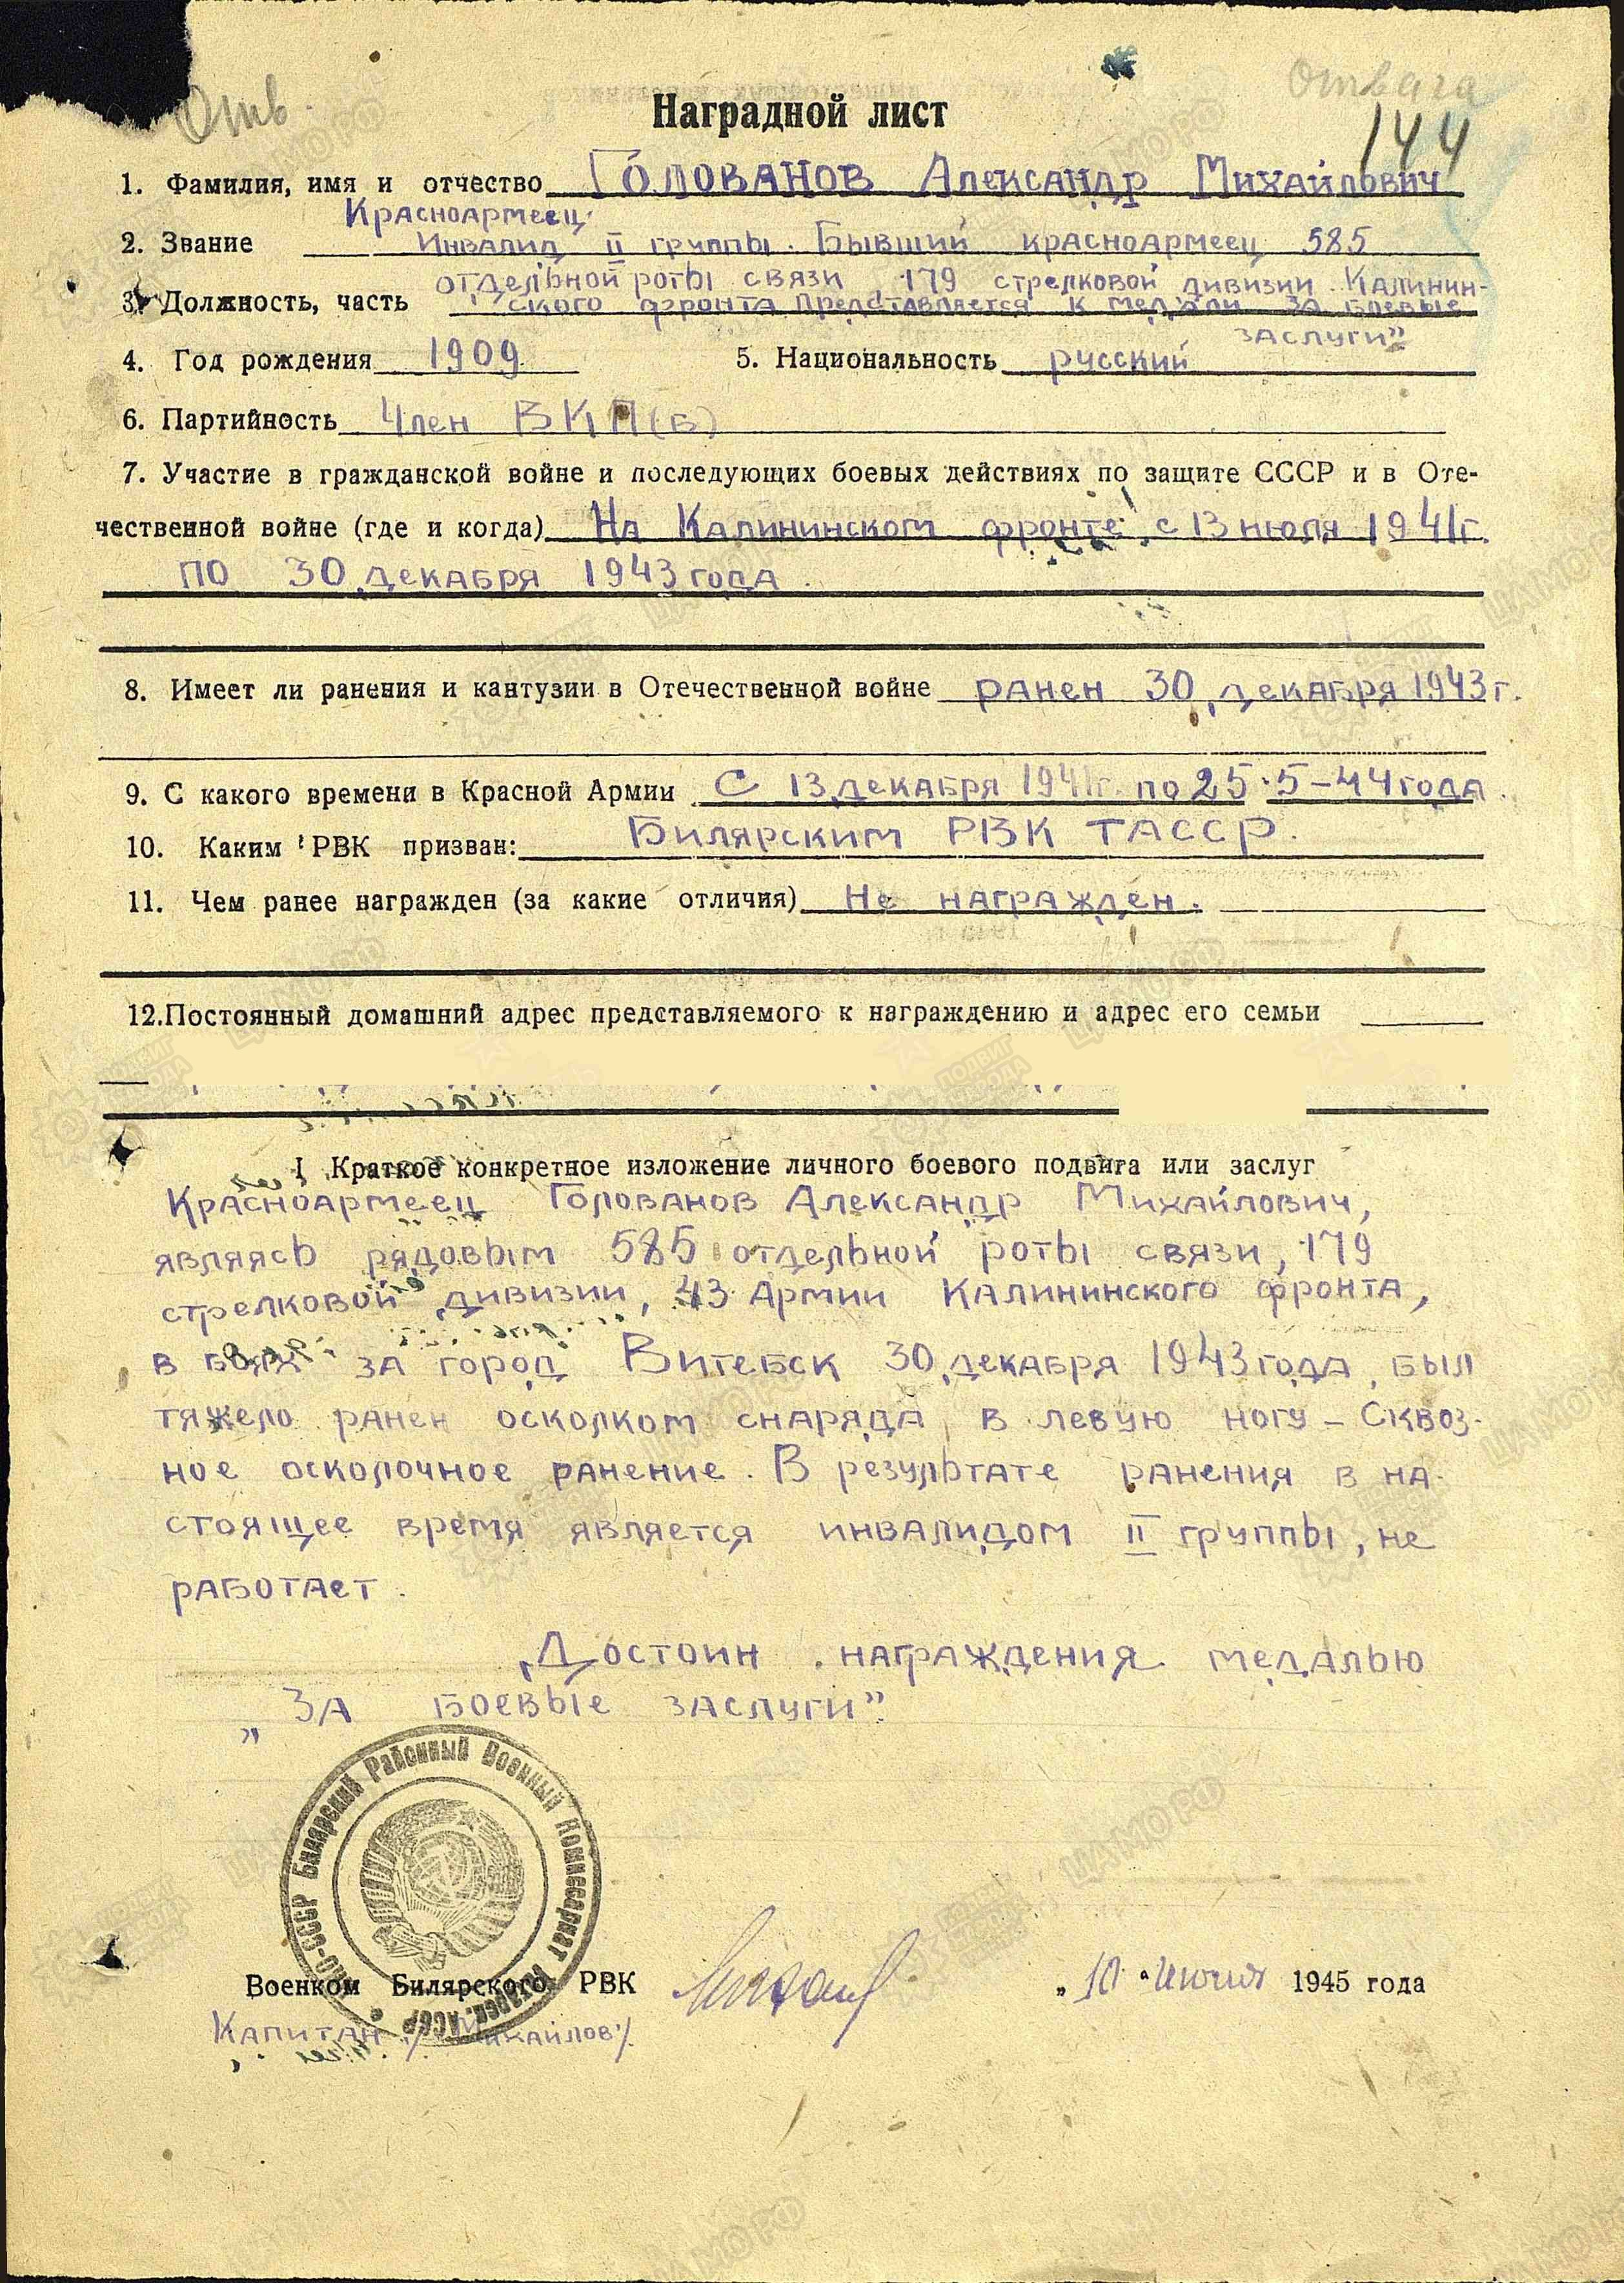 Отв
Отвага
Наградной лист
144
1. Фамилия, имя и отчество Голованов Александр Михайлович
Красноармеец
2. Звание Инвалид II группы. Бывший красноармеец 585
отдельной роты связи, 179 стрелковой дивизии Калинин-
3. Должность, часть ского фронта представляется к медали за боевые
заслуги"
4. Год рождения 1909 5. Национальность русский
6. Партийность Член ВКП(б)
7. Участие в гражданской войне и последующих боевых действиях по защите СССР и в Оте-
чественной войне (где и когда) На Калининском фронте, с 13 июля 1941г.
по 30 декабря 1943 года.
8. Имеет ли ранения и кантузии в Отечественной войне ранен 30 декабря 1943 г.
9. С какого времени в Красной Армии С 13 декабря 1941г. по 25.5-44 года.
10. Каким РВК призван: Билярским РВК ТАССР.
11. Чем ранее награжден (за какие отличия) Не награжден.
12. Постоянный домашний адрес представляемого к награждению и адрес его семьи
I Краткое конкретное изложение личного боевого подвига или заслуг
Красноармеец Голованов Александр Михайлович,
являясь рядовым 585 отдельной роты связи, 179
стрелковой дивизии, 43 Армии Калининского фронта,
в боях за город Витебск 30 декабря 1943 года, был
тяжело ранен осколком снаряда в левую ногу - Сквоз-
ное осколочное ранение. В результате ранения в на-
стоящее время является инвалидом II группы, не
работает.
Достоин награждения медалью
„За боевые заслуги".
НКО-СССР Билярский Районный Военный Комиссариат Татарск. АССР
Военком Билярского РВК „10" июня 1945 года
Капитан /Михайлов/